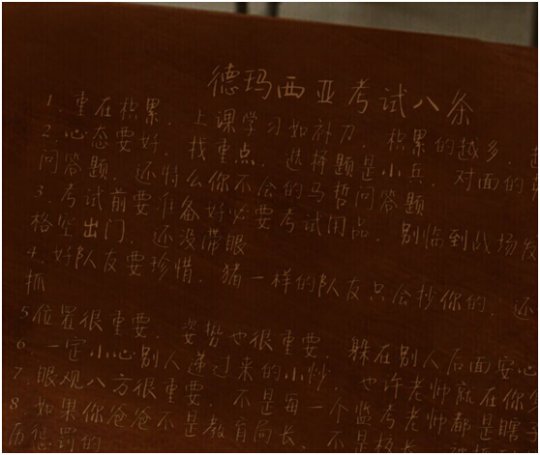 德玛西亚考试八条
1. 重在积累, 上课学习如补刀, 积累的越多,
2. 心态要好, 找重点, 选择题是小兵, 对面的
问答题, 还特么你不会的马哲问答题
3. 考试前要准备好必要考试用品, 别临到战场发
格空出门, 还没带眼
4. 好队友要珍惜, 猪一样的队友只会抄你的, 还
抓
5. 位置很重要, 姿势也很重要, 躲在别人后面安心
6. 一定小心别人递过来的小抄, 也许老师就在你
7. 眼观八方很重要, 不是每一个监考老师都是瞎子
8. 如果你爸爸不是教育局长, 不是校长,
历惩罚的